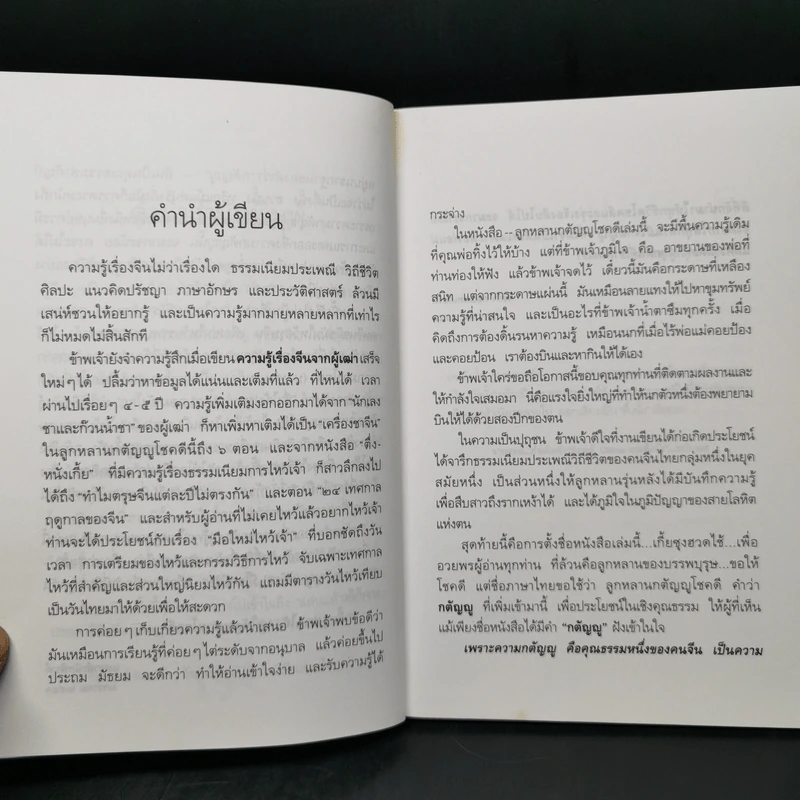 คำนำผู้เขียน
ความรู้เรื่องจีนไม่ว่าเรื่องใด ธรรมเนียมประเพณี วิถีชีวิต
ศิลปะ แนวคิดปรัชญา ภาษาอักษร และประวัติศาสตร์ ล้วนมี
เสน่ห์ชวนให้อยากรู้ และเป็นความรู้มากมายหลายหลากที่เท่าไร
ก็ไม่หมดไม่สิ้นสักที
ข้าพเจ้ายังจำความรู้สึกเมื่อเขียนความรู้เรื่องจีนจากผู้เฒ่าเสร็จ
ใหม่ๆ ได้ ปลื้มว่าหาข้อมูลได้แน่นและเต็มที่แล้ว ที่ไหนได้ เวลา
ผ่านไปเรื่อยๆ ๔-๕ ปี ความรู้เพิ่มเติมงอกออกมาได้จาก "นักเลง
ชาและก๊วนน้ำชา" ของผู้เฒ่า ก็หาเพิ่มหาเติมได้เป็น "เครื่องชาจีน"
ในลูกหลานกตัญญูโชคดีนี้ถึง ๖ ตอน และจากหนังสือ "ตึ่ง-
หนั่งเกี้ย" ที่มีความรู้เรื่องธรรมเนียมการไหว้เจ้า ก็สาวลึกลงไป
ได้ถึง "ทำไมตรุษจีนแต่ละปีไม่ตรงกัน" และตอน "๒๔ เทศกาล
ฤดูกาลของจีน" และสำหรับผู้อ่านที่ไม่เคยไหว้แล้วอยากไหว้เจ้า
ท่านจะได้ประโยชน์กับเรื่อง "มือใหม่ไหว้เจ้า" ที่บอกชัดถึงวัน
เวลา การเตรียมของไหว้และกรรมวิธีการไหว้ จับเฉพาะเทศกาล
ไหว้ที่สำคัญและส่วนใหญ่นิยมไหว้กัน แถมมีตารางวันไหว้เทียบ
เป็นวันไทยมาให้ด้วยเพื่อให้สะดวก
การค่อยๆ เก็บเกี่ยวความรู้แล้วนำเสนอ ข้าพเจ้าพบข้อดีว่า
มันเหมือนการเรียนรู้ที่ค่อยๆ ไต่ระดับจากอนุบาล แล้วค่อยขึ้นไป
ประถม มัธยม จะดีกว่า ทำให้อ่านเข้าใจง่าย และรับความรู้ได้
กระจ่าง
ในหนังสือ -- ลูกหลานกตัญญูโชคดีเล่มนี้ จะมีพื้นความรู้เดิม
ที่คุณพ่อทิ้งไว้ให้บ้าง แต่ที่ข้าพเจ้าภูมิใจ คือ อาขยานของพ่อที่
ท่านท่องให้ฟัง แล้วข้าพเจ้าจดไว้ เดี๋ยวนี้มันคือกระดาษที่เหลือง
สนิท แต่จากกระดาษแผ่นนี้ มันเหมือนลายแทงให้ไปหาขุมทรัพย์
ความรู้ที่น่าสนใจ และเป็นอะไรที่ข้าพเจ้าน้ำตาซึมทุกครั้ง เมื่อ
คิดถึงการต้องดิ้นรนหาความรู้ เหมือนนกที่เมื่อไร้พ่อแม่คอยป้อง
และคอยป้อน เราต้องบินและหากินให้ได้เอง
ข้าพเจ้าใคร่ขอถือโอกาสนี้ขอบคุณทุกท่านที่ติดตามผลงานและ
ให้กำลังใจเสมอมา นี่คือแรงใจยิ่งใหญ่ที่ทำให้นกตัวหนึ่งต้องพยายาม
บินให้ได้ด้วยสองปีกของตน
ในความเป็นปุถุชน ข้าพเจ้าดีใจที่งานเขียนได้ก่อเกิดประโยชน์
ได้จารึกธรรมเนียมประเพณีวิถีชีวิตของคนจีนไทยกลุ่มหนึ่งในยุค
สมัยหนึ่ง เป็นส่วนหนึ่งให้ลูกหลานรุ่นหลังได้มีบันทึกความรู้
เพื่อสืบสาวถึงรากเหง้าได้ และได้ภูมิใจในภูมิปัญญาของสายโลหิต
แห่งตน
สุดท้ายนี้คือการตั้งชื่อหนังสือเล่มนี้...เกี้ยซุงฮวดไช้...เพื่อ
อวยพรผู้อ่านทุกท่าน ที่ล้วนคือลูกหลานของบรรพบุรุษ...ขอให้
โชคดี แต่ชื่อภาษาไทยขอใช้ว่า ลูกหลานกตัญญูโชคดี คำว่า
กตัญญู ที่เพิ่มเข้ามานี้ เพื่อประโยชน์ในเชิงคุณธรรม ให้ผู้ที่เห็น
แม้เพียงชื่อหนังสือได้มีคำ "กตัญญู" ฝังเข้าในใจ
เพราะความกตัญญู คือคุณธรรมหนึ่งของคนจีน เป็นความ